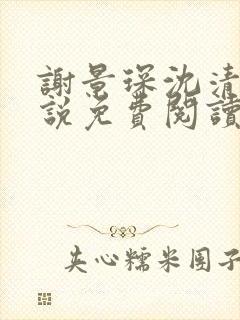 謝景琛沈清
說免費閱讀
夾心糯米團子